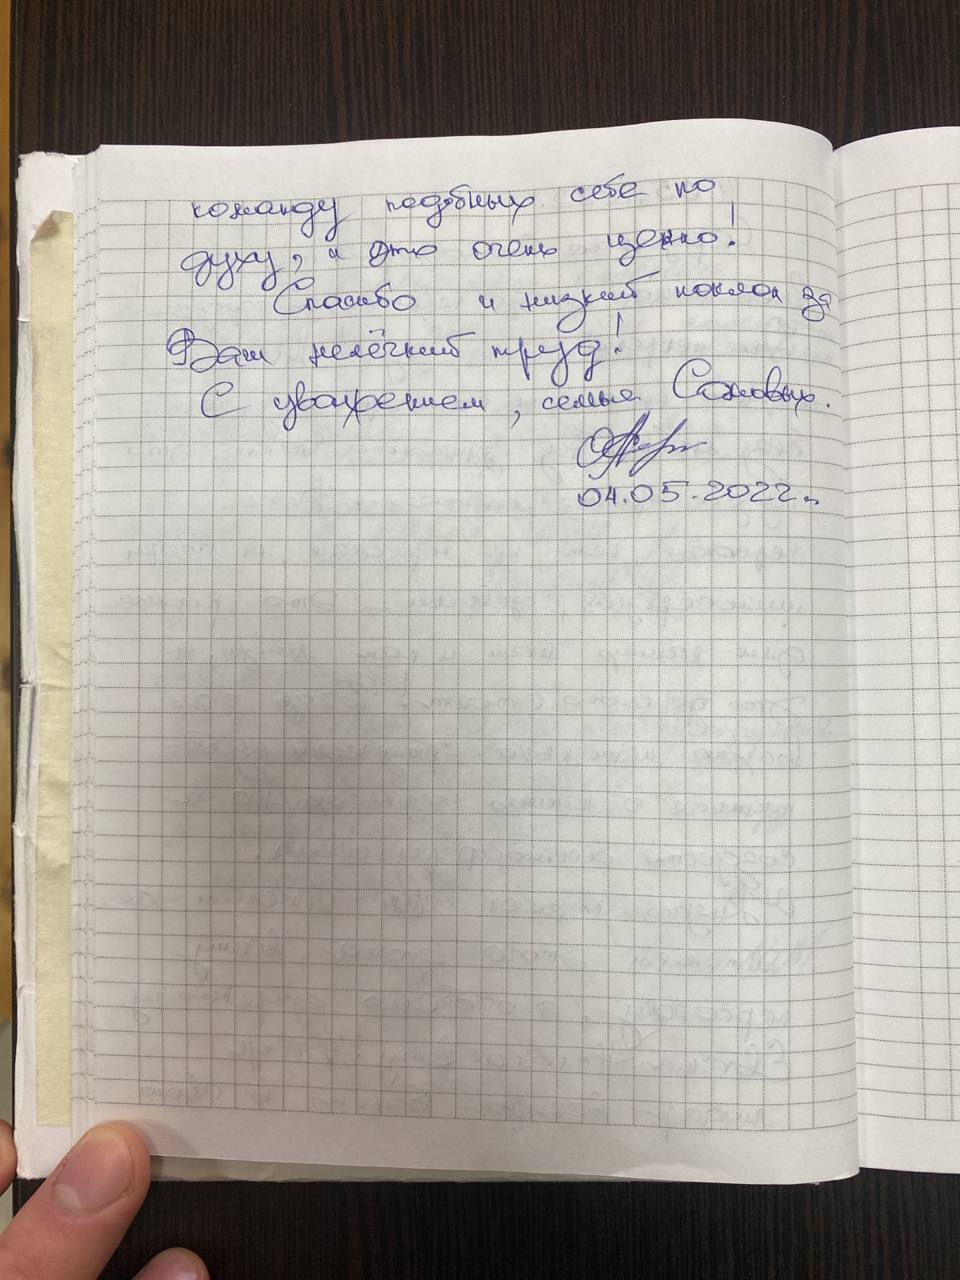 команду подобных себе по
духу, и это очень ценно!
Спасибо и низкий поклон за
Ваш нелёгкий труд!
С уважением, семья
04.05.2022г.